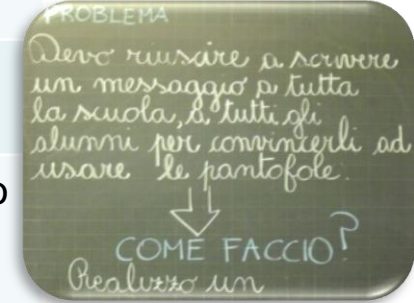 PROBLEMA
Devo riuscire a scrivere
un messaggio a tutta
la scuola, a tutti gli
alunni per convincerli ad
usare le pantofole.
COME FACCIO?
Realizzo un